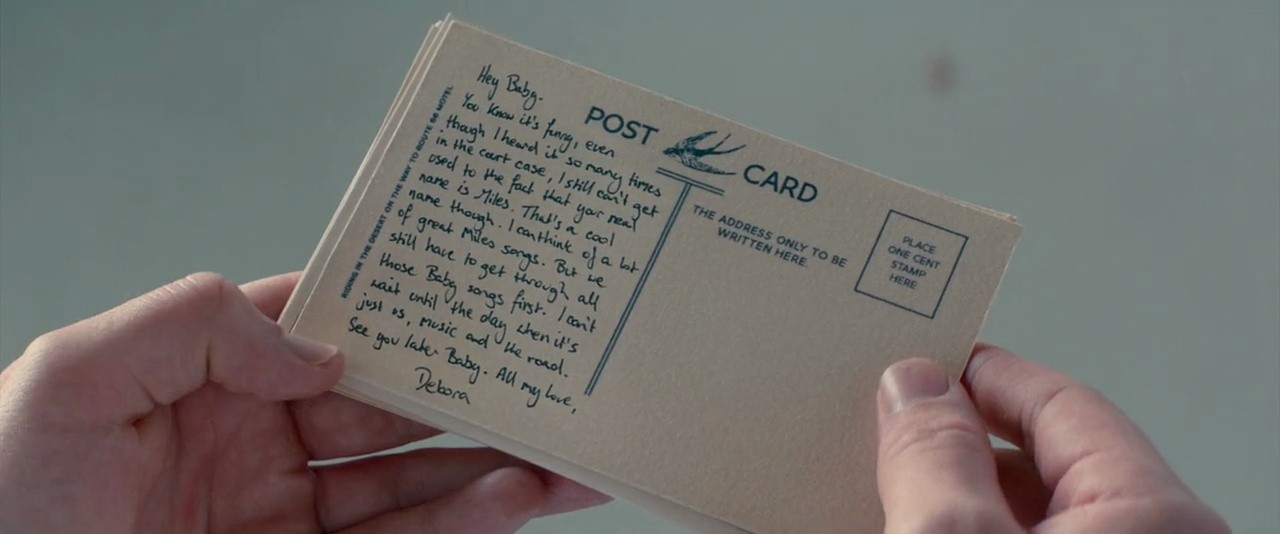 Hey Baby.
You know it's funny, even
though I heard it so many times
in the court case, I still can't get
used to the fact that your real
name is Miles. That's a cool
name though. I can think of a lot
of great Miles songs. But we
still have to get through all
those Baby songs first. I can't
wait until the day when it's
just us, music and the road.
See you later Baby. All my love,
Debora
RIDING IN THE DESERT ON THE WAY TO ROUTE 66 MOTEL
POST CARD
THE ADDRESS ONLY TO BE
WRITTEN HERE.
PLACE
ONE CENT
STAMP
HERE